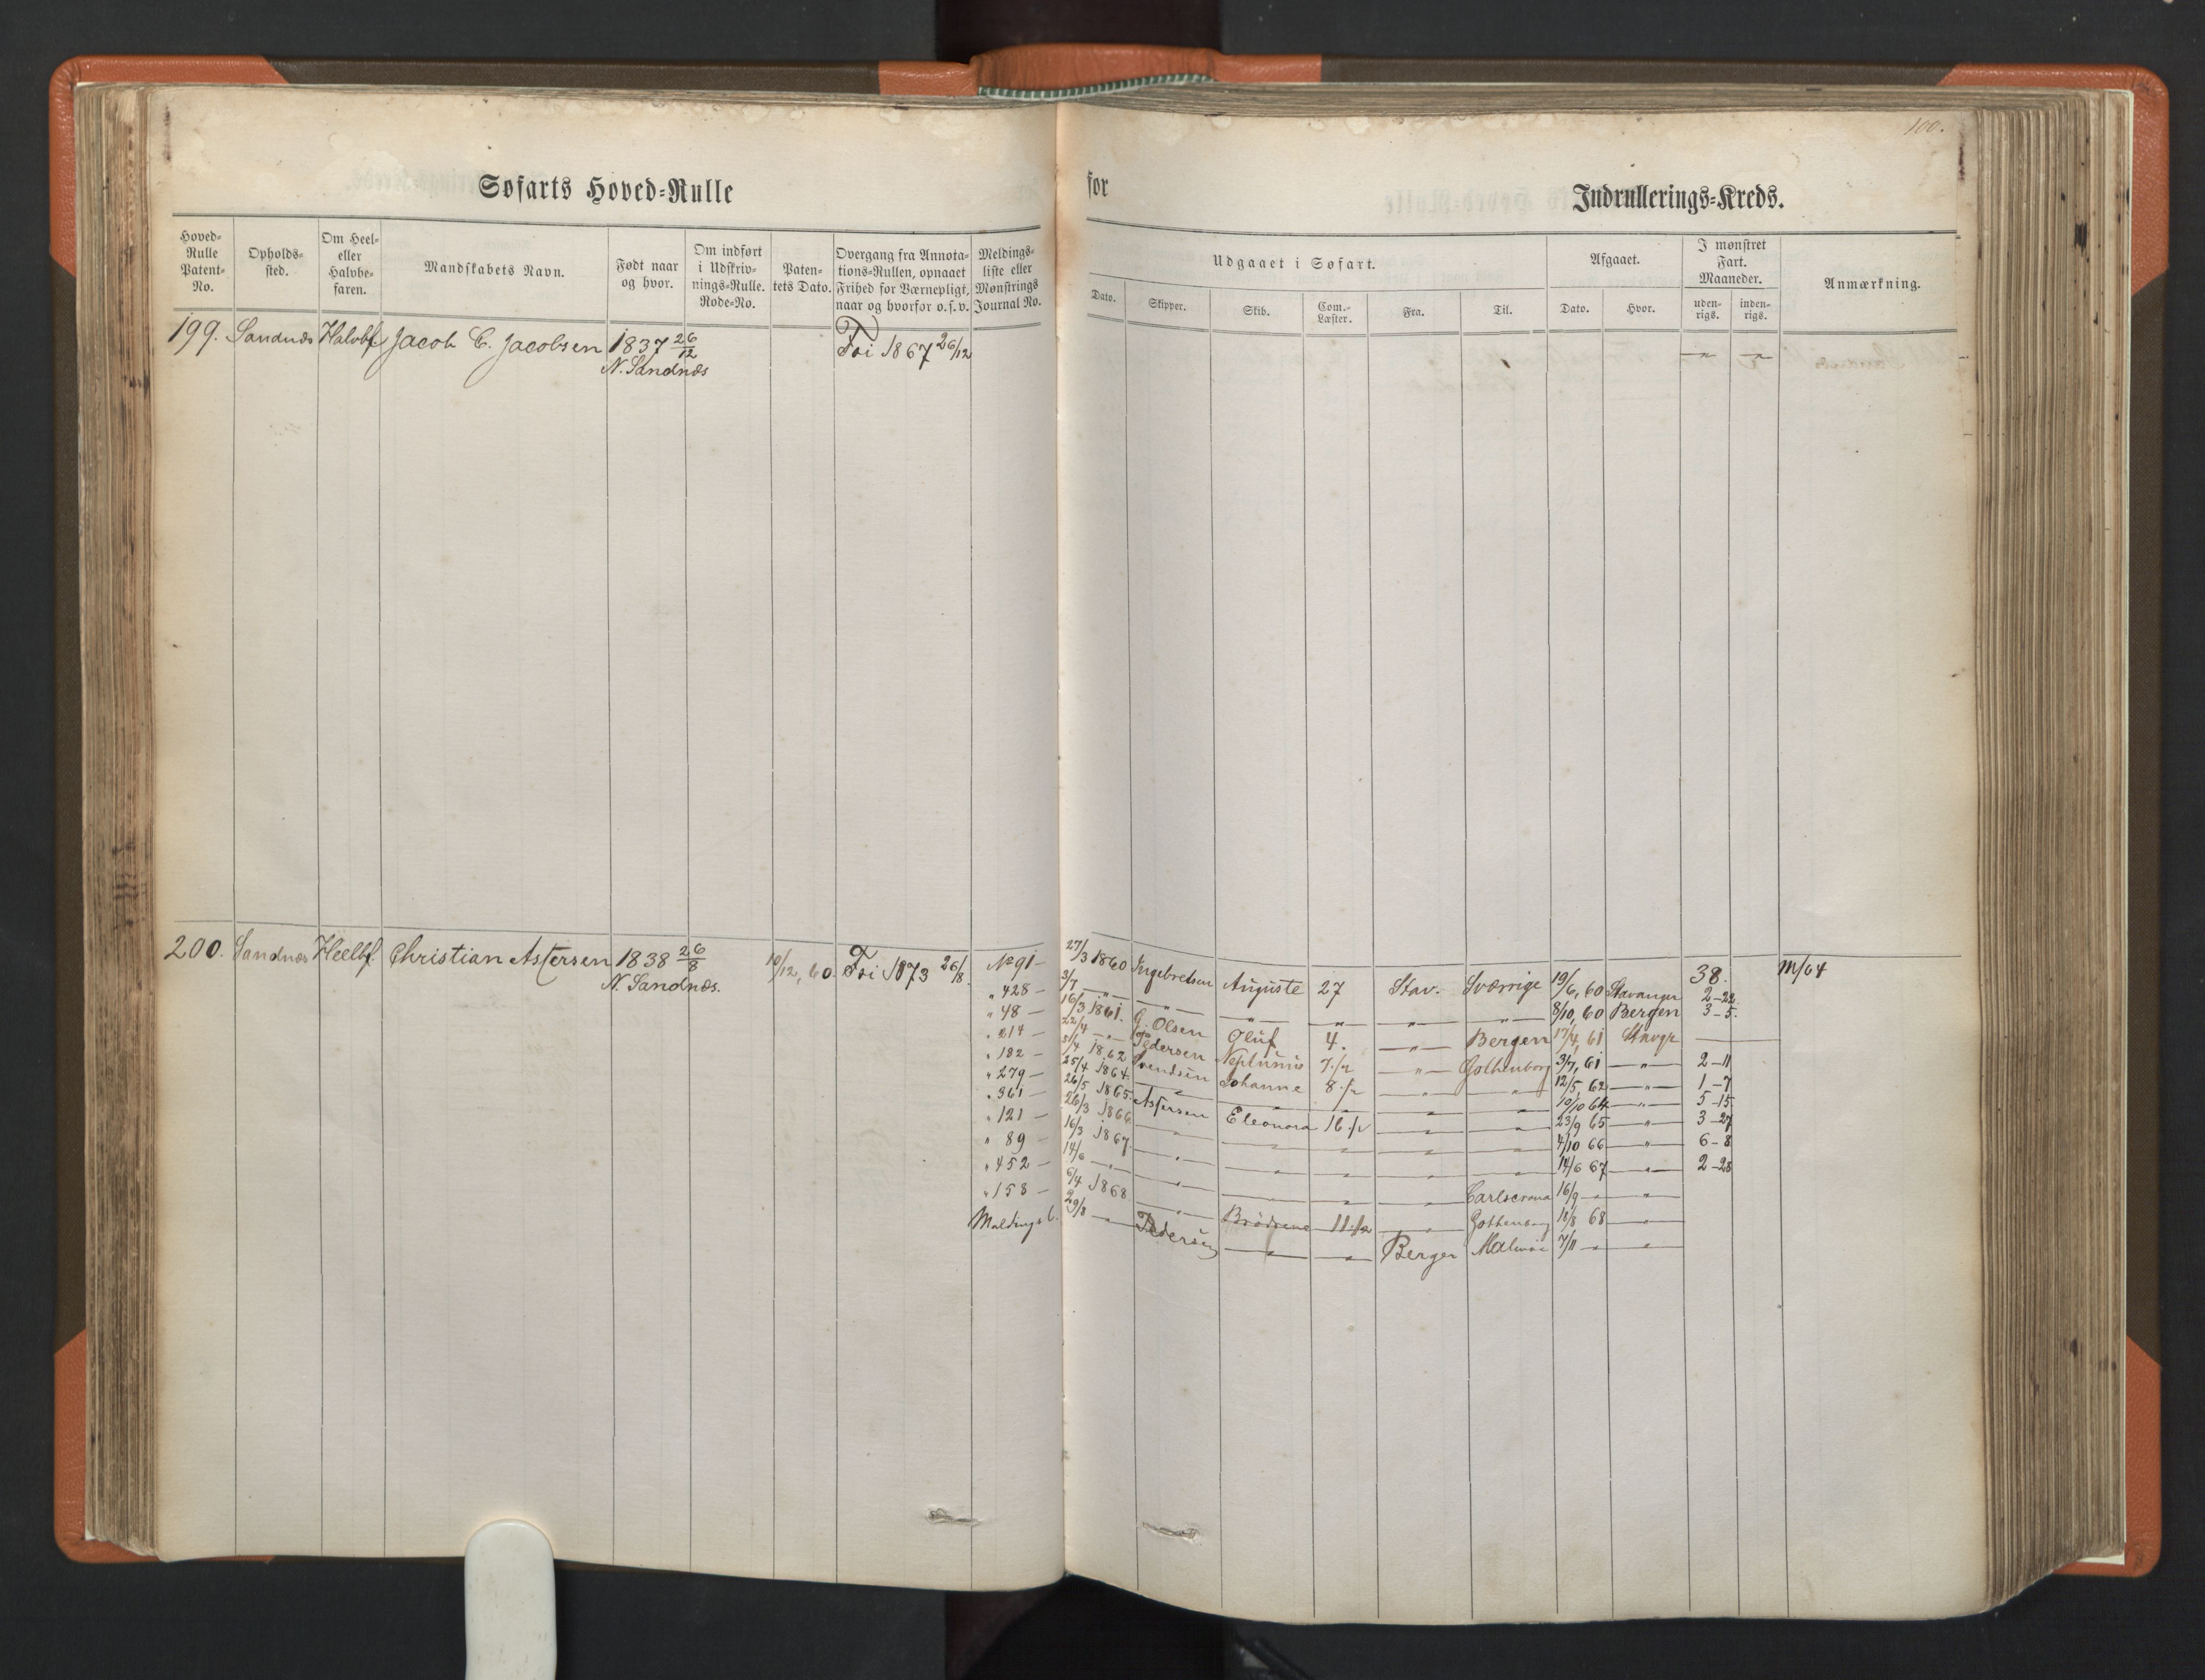 100.
Søfarts Hoved-Rulle for Indrullerings-Kreds.
Hoved-Rulle Patent-No.
Opholds-sted.
Om Heel- eller Halvbe-faren.
Mandskabets Navn.
Født naar og hvor.
Om indført i Udskriv-nings-Rulle. Rode-No.
Paten-tets Dato.
Overgang fra Annota-tions-Rullen, opnaaet Frihed for Værnepligt, naar og hvorfor o.s.v.
Meldings-liste eller Mønstrings Journal No.
Udgaaet i Søfart.
Dato.
Skipper.
Skib.
Com.-Læster.
Fra.
Til.
Afgaaet.
Dato.
Hvor.
I mønstret Fart. Maaneder.
uden-rigs.
inden-rigs.
Anmærkning.
199. Sandnæs Halvbf. Jacob C. Jacobsen 1837 26/12 Fri 1867 26/12 — " — — " —
N. Sandnæs
200. Sandnæs Heelbf. Christian Assersen 1838 26/8 10/12, 60. Fri 1873 26/8. No 91 — 27/3 1860 Ingebretsen Auguste 27 Stav. Sverrige 19/6, 60 Stavanger 38. 2-22 m/64
N. Sandnæs.
" 428 — 3/7 — " — — " — — " — — " — — " — — " — 8/10, 60 Bergen 3-5.
" 48 — 16/3 1861. G. Olsen Oluf 4. — " — Bergen 17/4, 61 Stavgr
" 214 — 22/4 — " — Pedersen Neptunus 7 1/2 — " — Gothenborg 3/7, 61 — " — 2-11
" 182 — 5/4 1862 Svendsen Johanne 8 1/2 — " — — " — 12/5 62 — " — 1-7
" 279 — 25/4 1864. — " — — " — — " — — " — — " — 10/10 64 — " — 5-15
" 361 — 26/5 1865. Assersen Eleonora 16 1/2 — " — — " — 23/9 65 — " — 3-27
" 121 — 26/3 1866 — " — — " — — " — — " — — " — 4/10 66 — " — 6-8
" 89 — 16/3 1867. — " — — " — — " — — " — — " — 14/6 67 — " — 2-28
" 452 — 14/6 — " — — " — — " — — " — — " — Carlscrona 16/9 — " — — " —
" 158 — 6/4 1868 — " — Brødrene 11 1/2 — " — Gothenborg 18/8 68 — " —
Meldings l. 29/8 — " — Pedersen — " — — " — Bergen Malmöe 7/11 — " — — " —